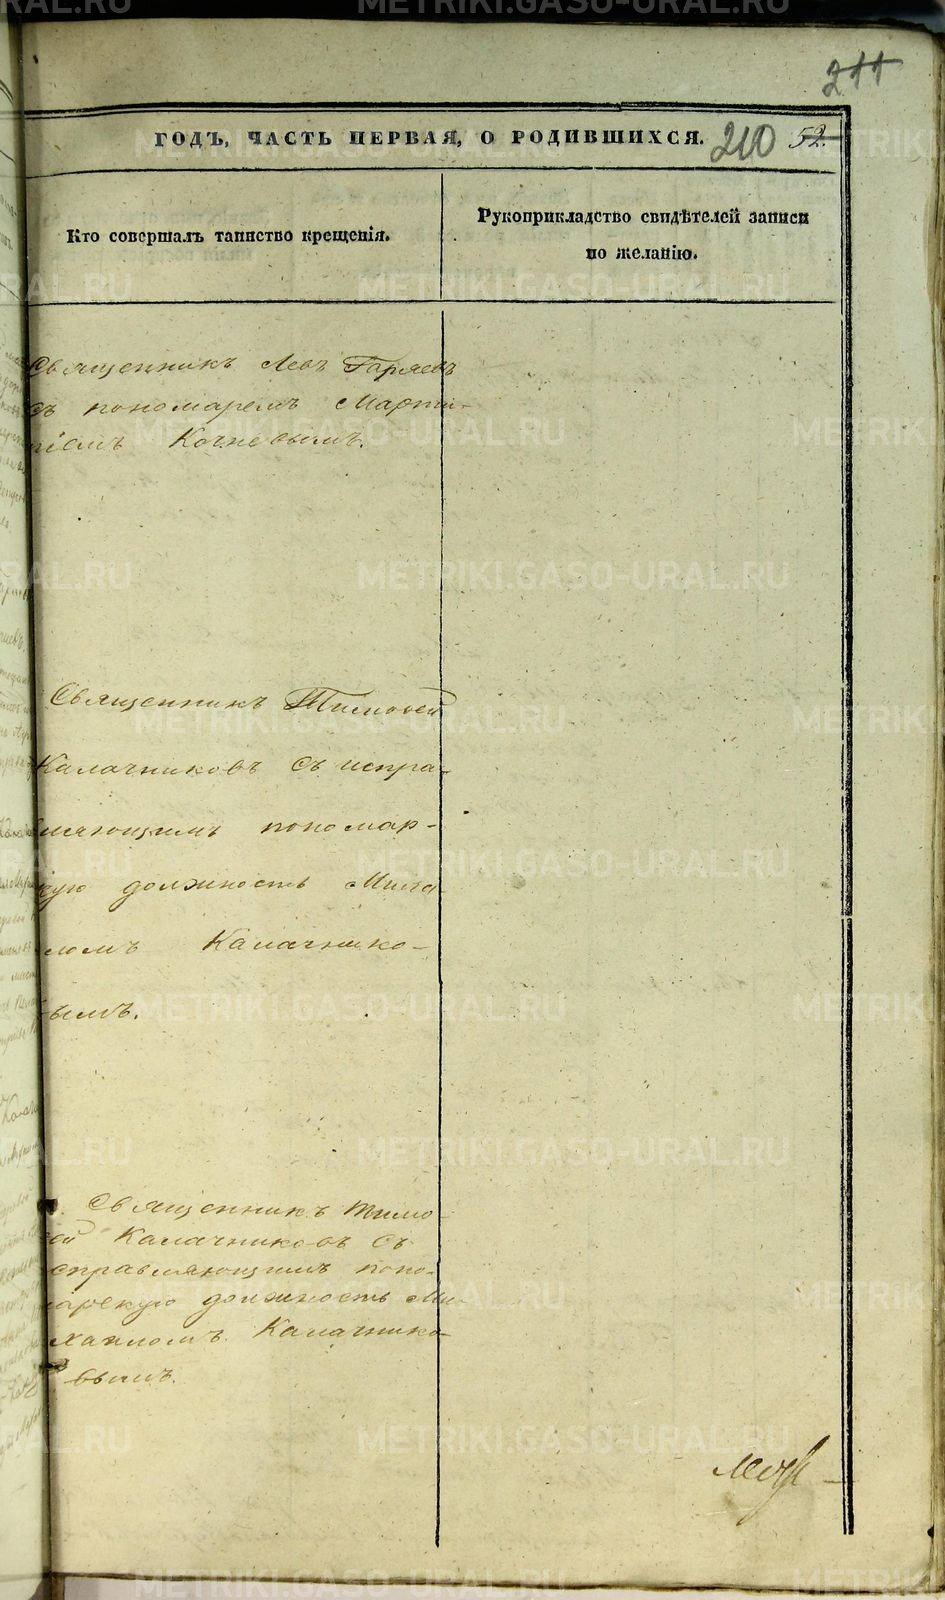 211
ГОДЪ, ЧАСТЬ ПЕРВАЯ, О РОДИВШИХСЯ. 210 52.
Кто совершалъ таинство крещенія.
Рукоприкладство свидѣтелей записи
по желанію.
Священникъ Левъ Гаряевъ
съ пономаремъ Марти-
ніемъ Кочневымъ.
Священникъ Тимоѳей
Калачниковъ съ испра-
вляющимъ пономар-
скую должность Миха
иломъ Калачнико-
вымъ.
Священникъ Тимо-
ѳей Калачниковъ съ
исправляющимъ поно-
марскую должность Ми-
хаиломъ Калачнико-
вымъ.
METRIKI.GASO-URAL.RU